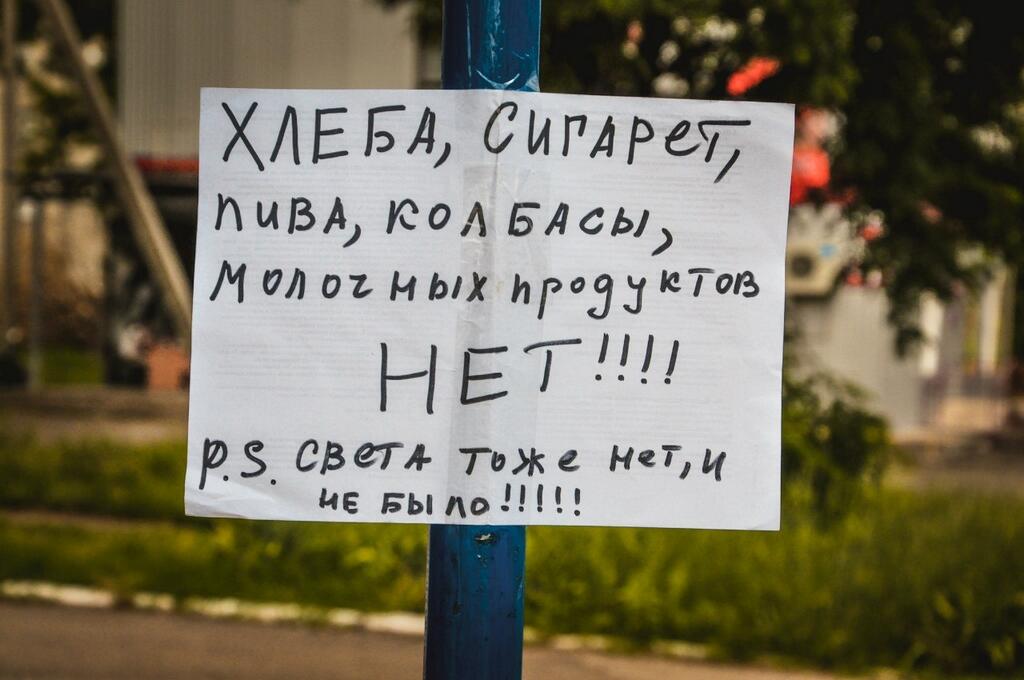 ХЛЕБА, СИГАРЕТ,
ПИВА, КОЛБАСЫ,
МОЛОЧНЫХ ПРОДУКТОВ
НЕТ!!!!
P.S. СВЕТА ТОЖЕ НЕТ, И
НЕ БЫЛО!!!!!